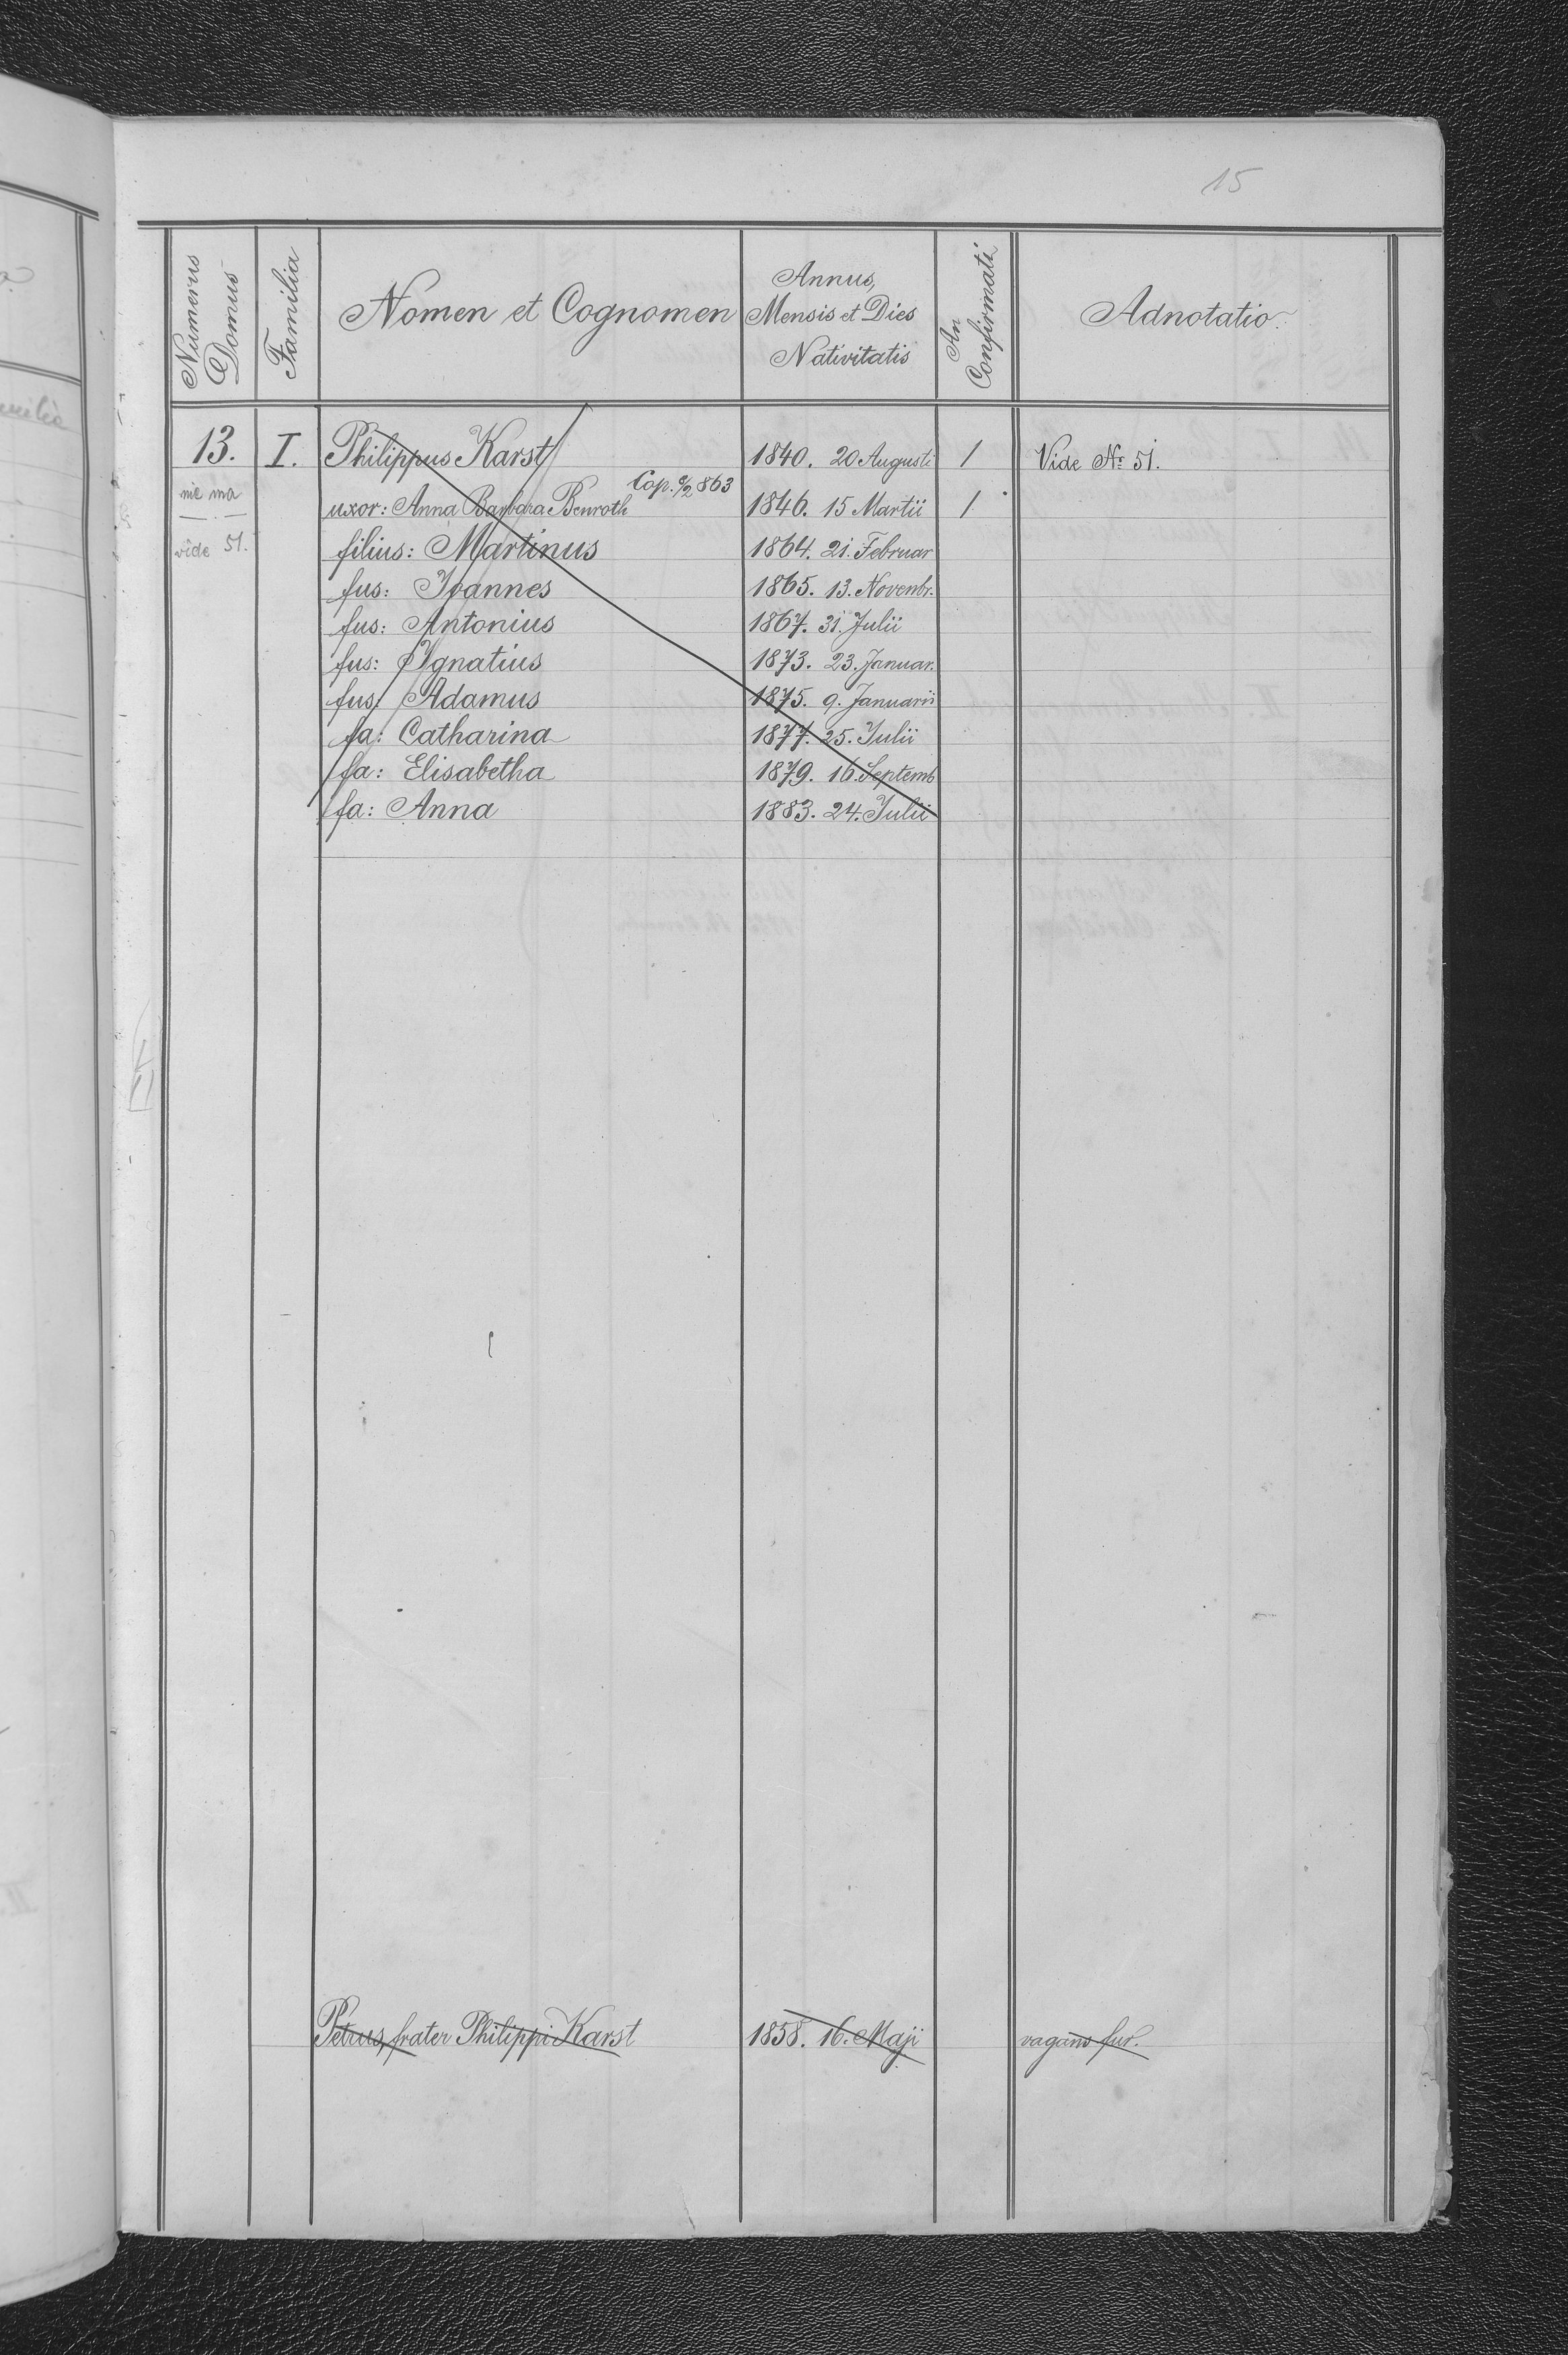 15
Numerus Domus
Familia
Nomen et Cognomen
Annus, Mensis et Dies Nativitatis
An Confirmati
Adnotatio.
13. I. Philippus Karst 1840. 20 Augusti 1 Vide No. 51.
nie ma
vide 51.
Cop. 9/2 863
uxor: Anna Barbara Benroth 1846. 15 Martii 1
filius: Martinus 1864. 21. Februar
fus: Joannes 1865. 13. Novenbr.
fus: Antonius 1867. 31. Julii
fus: Ignatius 1873. 23. Januar.
fus: Adamus 1875. 9. Januarii
fa: Catharina 1877. 25. Julii
fa: Elisabetha 1879. 16. Septemb
fa: Anna 1883. 24. Julii
Petrus, frater Philippi Karst 1858. 16. Maji vagans fur.